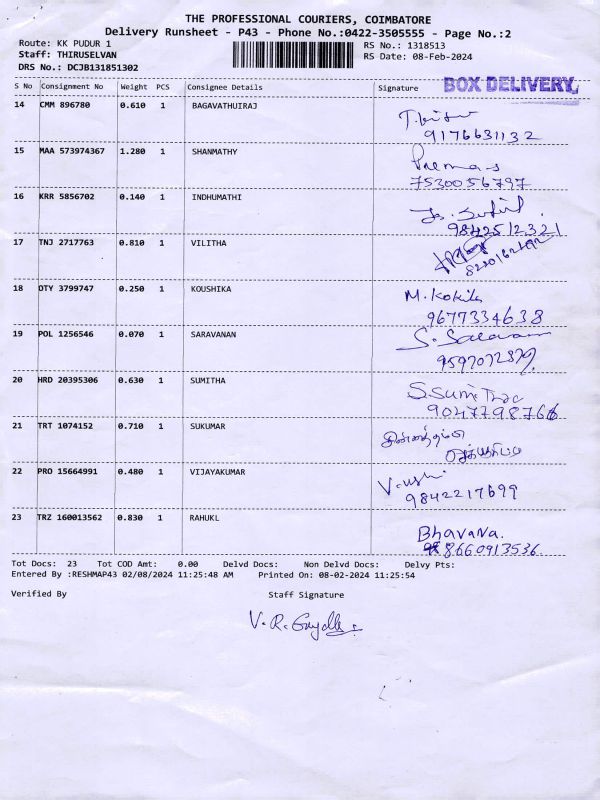 THE PROFESSIONAL COURIERS, COIMBATORE
Delivery Runsheet - P43 - Phone No.:0422-3505555 - Page No.:2
Route: KK PUDUR 1 RS No.: 1318513
Staff: THIRUSELVAN RS Date: 08-Feb-2024
DRS No.: DCJB131851302
BOX DELIVERY
S No Consignment No Weight PCS Consignee Details Signature
14 CMM 896780 0.610 1 BAGAVATHUIRAJ
9176631132
15 MAA 573974367 1.280 1 SHANMATHY
7530056797
16 KRR 5856702 0.140 1 INDHUMATHI
9842512321
17 TNJ 2717763 0.810 1 VILITHA
18 DTY 3799747 0.250 1 KOUSHIKA M. Kokila
9677334638
19 POL 1256546 0.070 1 SARAVANAN
20 HRD 20395306 0.630 1 SUMITHA S.Sumitha
21 TRT 1074152 0.710 1 SUKUMAR
22 PRO 15664991 0.480 1 VIJAYAKUMAR
9842217699
23 TRZ 160013562 0.830 1 RAHUKL
Bhavana.
8660913536
Tot Docs: 23 Tot COD Amt: 0.00 Delvd Docs: Non Delvd Docs: Delvy Pts:
Entered By :RESHMAP43 02/08/2024 11:25:48 AM Printed On: 08-02-2024 11:25:54
Verified By Staff Signature